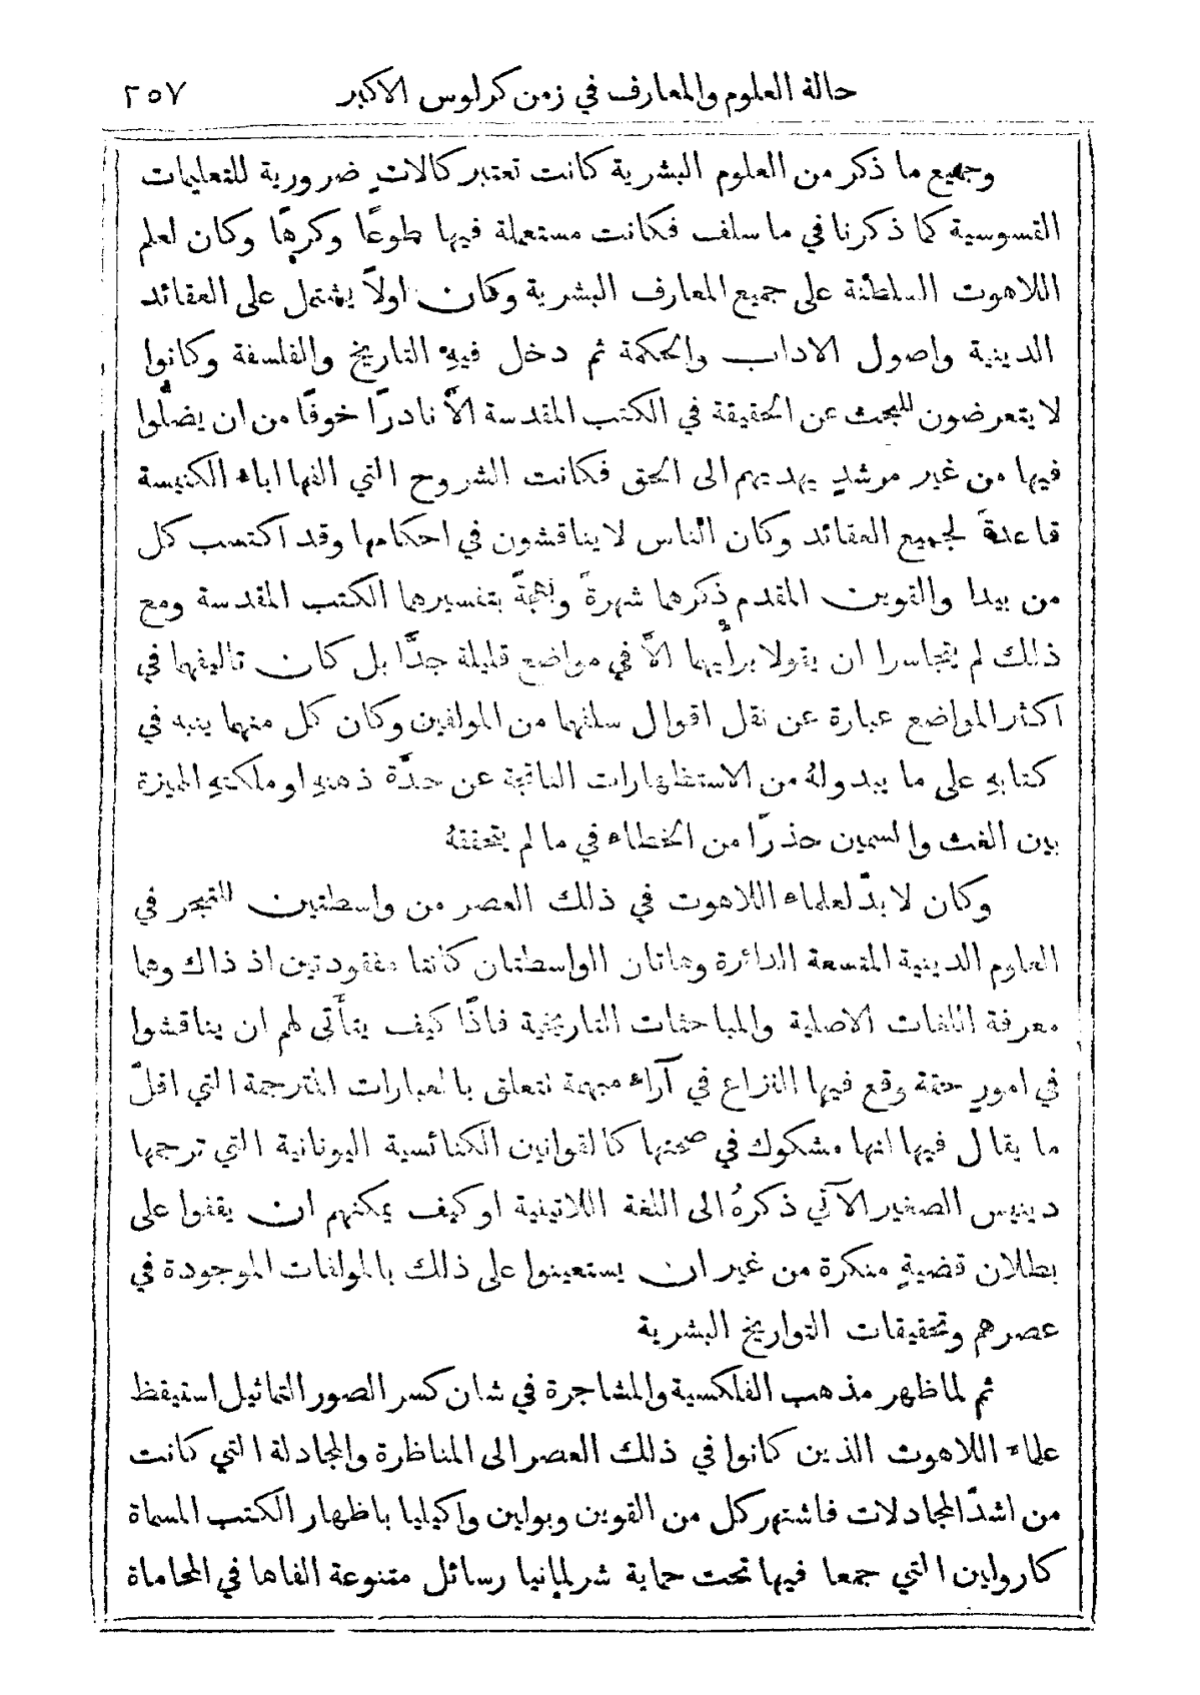 حالة العلوم والمعارف في زمن كرلوس الاكبر ٢٥٧
وجميع ما ذكر من العلوم البشرية كانت تعتبر كالاتٍ ضرورية للتعليمات
القسوسية كما ذكرنا في ما سلف فكانت مستعملة فيها طوعًا وكرهًا وكان لعلم
اللاهوت السلطنة على جميع المعارف البشرية وكان اولاً يشتمل على العقائد
الدينية واصول الاداب والحكمة ثم دخل فيهِ التاريخ والفلسفة وكانوا
لا يتعرضون للبحث عن الحقيقة في الكتب المقدسة الاَّ نادرًا خوفًا من ان يضلُّوا
فيها من غير مرشدٍ يهديهم الى الحق فكانت الشروح التي الفها اباء الكنيسة
قاعدةً لجميع العقائد وكان الناس لا يناقشون في احكامها وقد اكتسب كل
من بيدا والقوين المقدم ذكرها شهرةً وبهجةً بتفسيرها الكتب المقدسة ومع
ذلك لم يتجاسرا ان يقولا برأيهما الاَّ في مواضع قليلة جدًّا بل كان تاليفهما في
اكثر المواضع عبارة عن نقل اقوال سلفهما من المولفين وكان كل منهما ينبه في
كتابهِ على ما يبدو لهُ من الاستظهارات الناتجة عن حدَّة ذهنهِ او ملكتهِ المميزة
بين الغث والسمين حذرًا من الخطاء في ما لم يتحققهُ
وكان لا بدَّ لعلماء اللاهوت في ذلك العصر من واسطتين للتبحر في
العلوم الدينية المتسعة الدائرة وهاتان الواسطتان كانتا مفقودتين اذ ذاك وها
معرفة اللغات الاصلية والمباحثات التاريخية فاذًا كيف يتأَتى لهم ان يناقشوا
في امورٍ حقة وقع فيها النزاع في آراء مبهمة تتعلق بالعبارات المترجمة التي اقلّ
ما يقال فيها انها مشكوك في صحتها كالقوانين الكنائسية اليونانية التي ترجمها
دينيس الصغير الآتي ذكرهُ الى اللغة اللاتينية او كيف يمكنهم ان يقفوا على
بطلان قضيةٍ منكرة من غير ان يستعينوا على ذلك بالمولفات الموجودة في
عصرهم وتحقيقات التواريخ البشرية
ثم لما ظهر مذهب الفلكسية والمشاجرة في شان كسر الصور التماثيل استيقظ
علماء اللاهوت الذين كانوا في ذلك العصر الى المناظرة والمجادلة التي كانت
من اشدّ المجادلات فاشتهر كل من القوين وبولين واكيليا باظهار الكتب المسماة
كارولين التي جمعا فيها تحت حماية شرلمانيا رسائل متنوعة الفاها في المحاماة